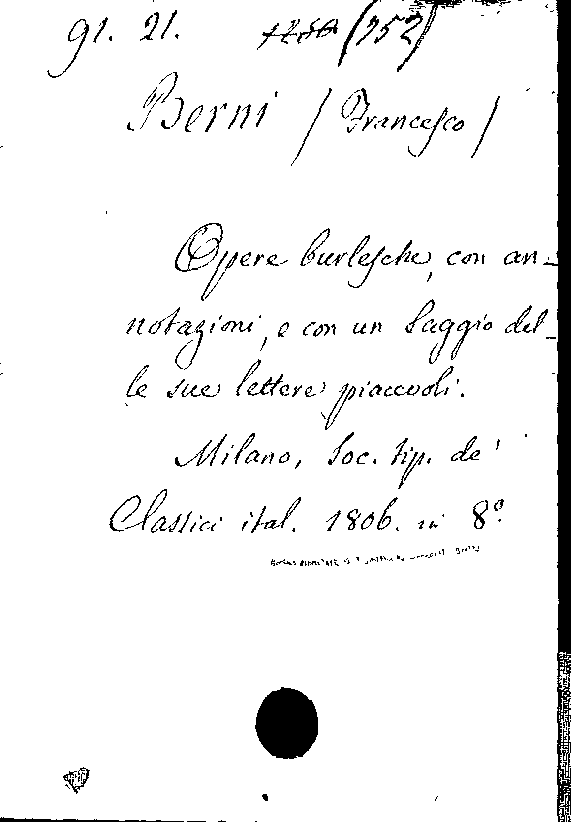 91. 21. (152)
Berni (Francesco)
Opere burlesche, con an-
notazioni, e con un Saggio del-
le sue lettere piacevoli.
Milano, Soc. tip. de'
Classici ital. 1806. in 8º.